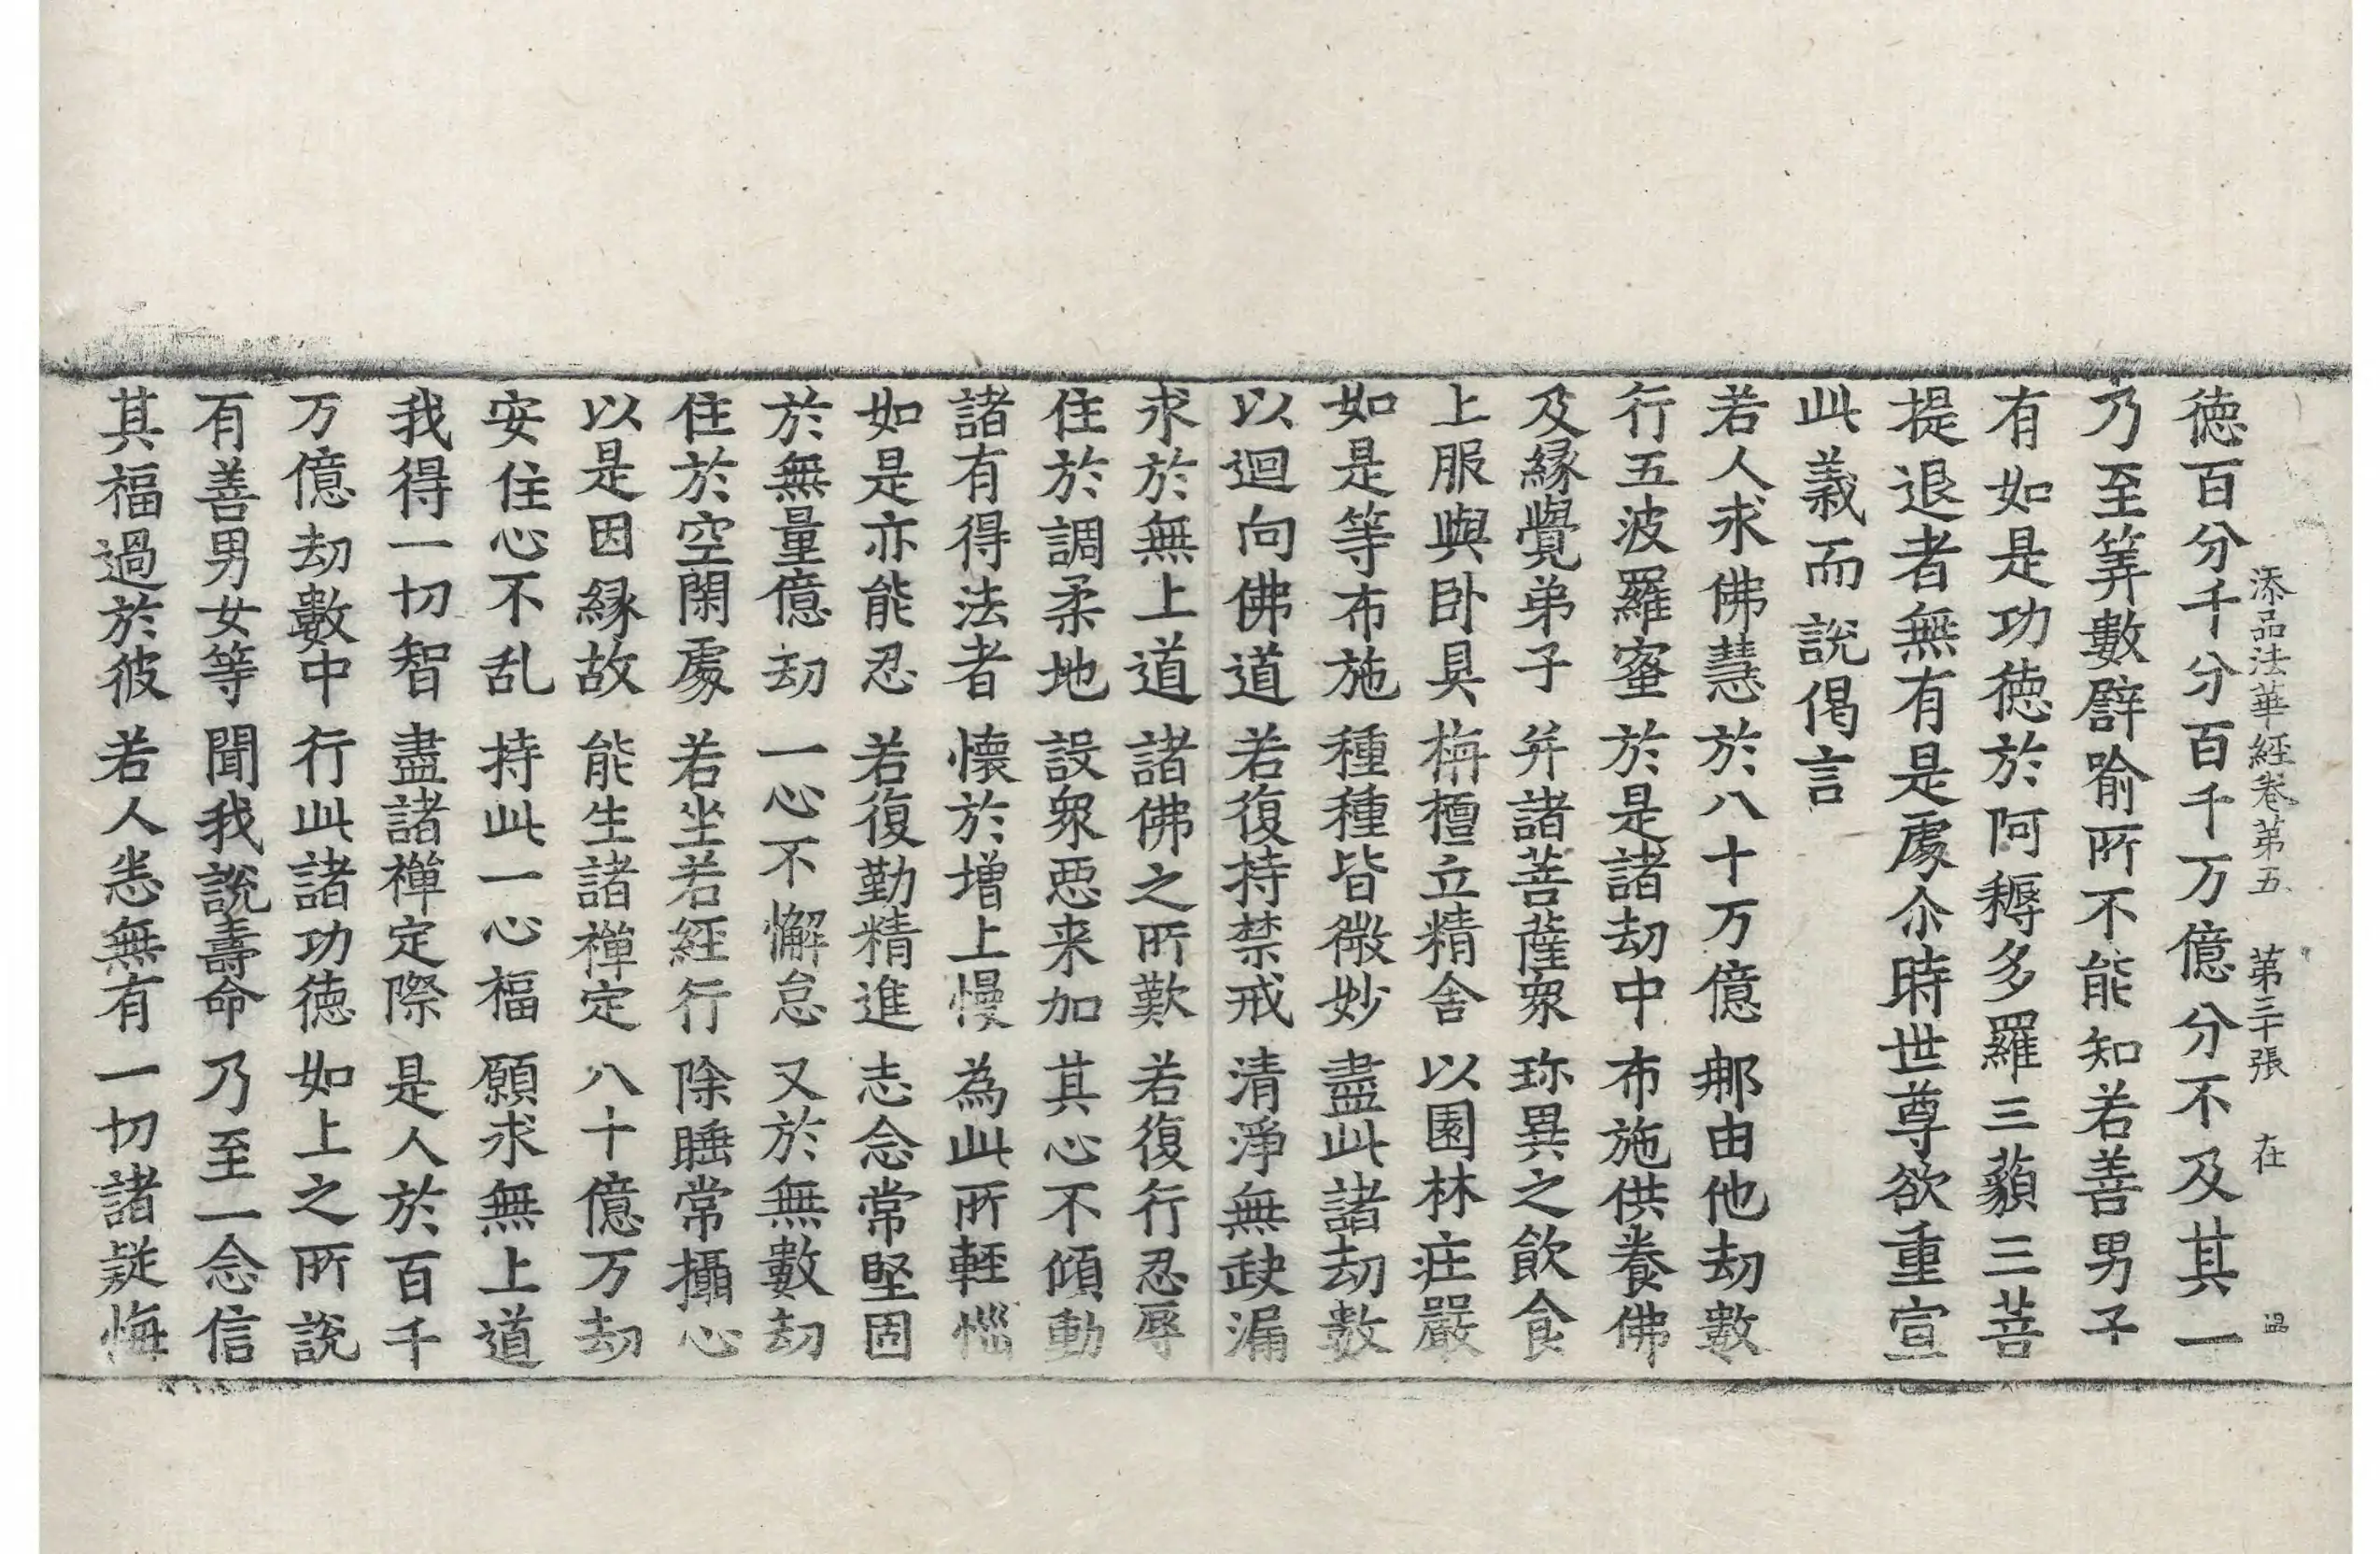 添品法華経卷第五 第三十張 在
德百分千分百千万億分不及其一
乃至筭數譬喻所不能知若善男子
有如是功德於阿耨多羅三藐三菩
提退者無有是處尒時世尊欲重宣
此義而說偈言
若人求佛慧 於八十万億 那由他劫數
行五波羅蜜 於是諸劫中 布施供養佛
及縁覺弟子 并諸菩薩衆 珎異之飲食
上服與卧具 栴檀立精舍 以園林庄嚴
如是等布施 種種皆微妙 盡此諸劫數
以迴向佛道 若復持禁戒 清淨無缺漏
求於無上道 諸佛之所歎 若復行忍辱
住於調柔地 設衆惡来加 其心不傾動
諸有得法者 懷於增上慢 為此所輕惱
如是亦能忍 若復勤精進 志念常堅固
於無量億劫 一心不懈怠 又於無數劫
住於空閑處 若坐若經行 除睡常攝心
以是因縁故 能生諸禪定 八十億万劫
安住心不乱 持此一心福 願求無上道
我得一切智 盡諸禪定際 是人於百千
万億劫數中 行此諸功德 如上之所說
有善男女等 聞我說壽命 乃至一念信
其福過於彼 若人悉無有 一切諸疑悔